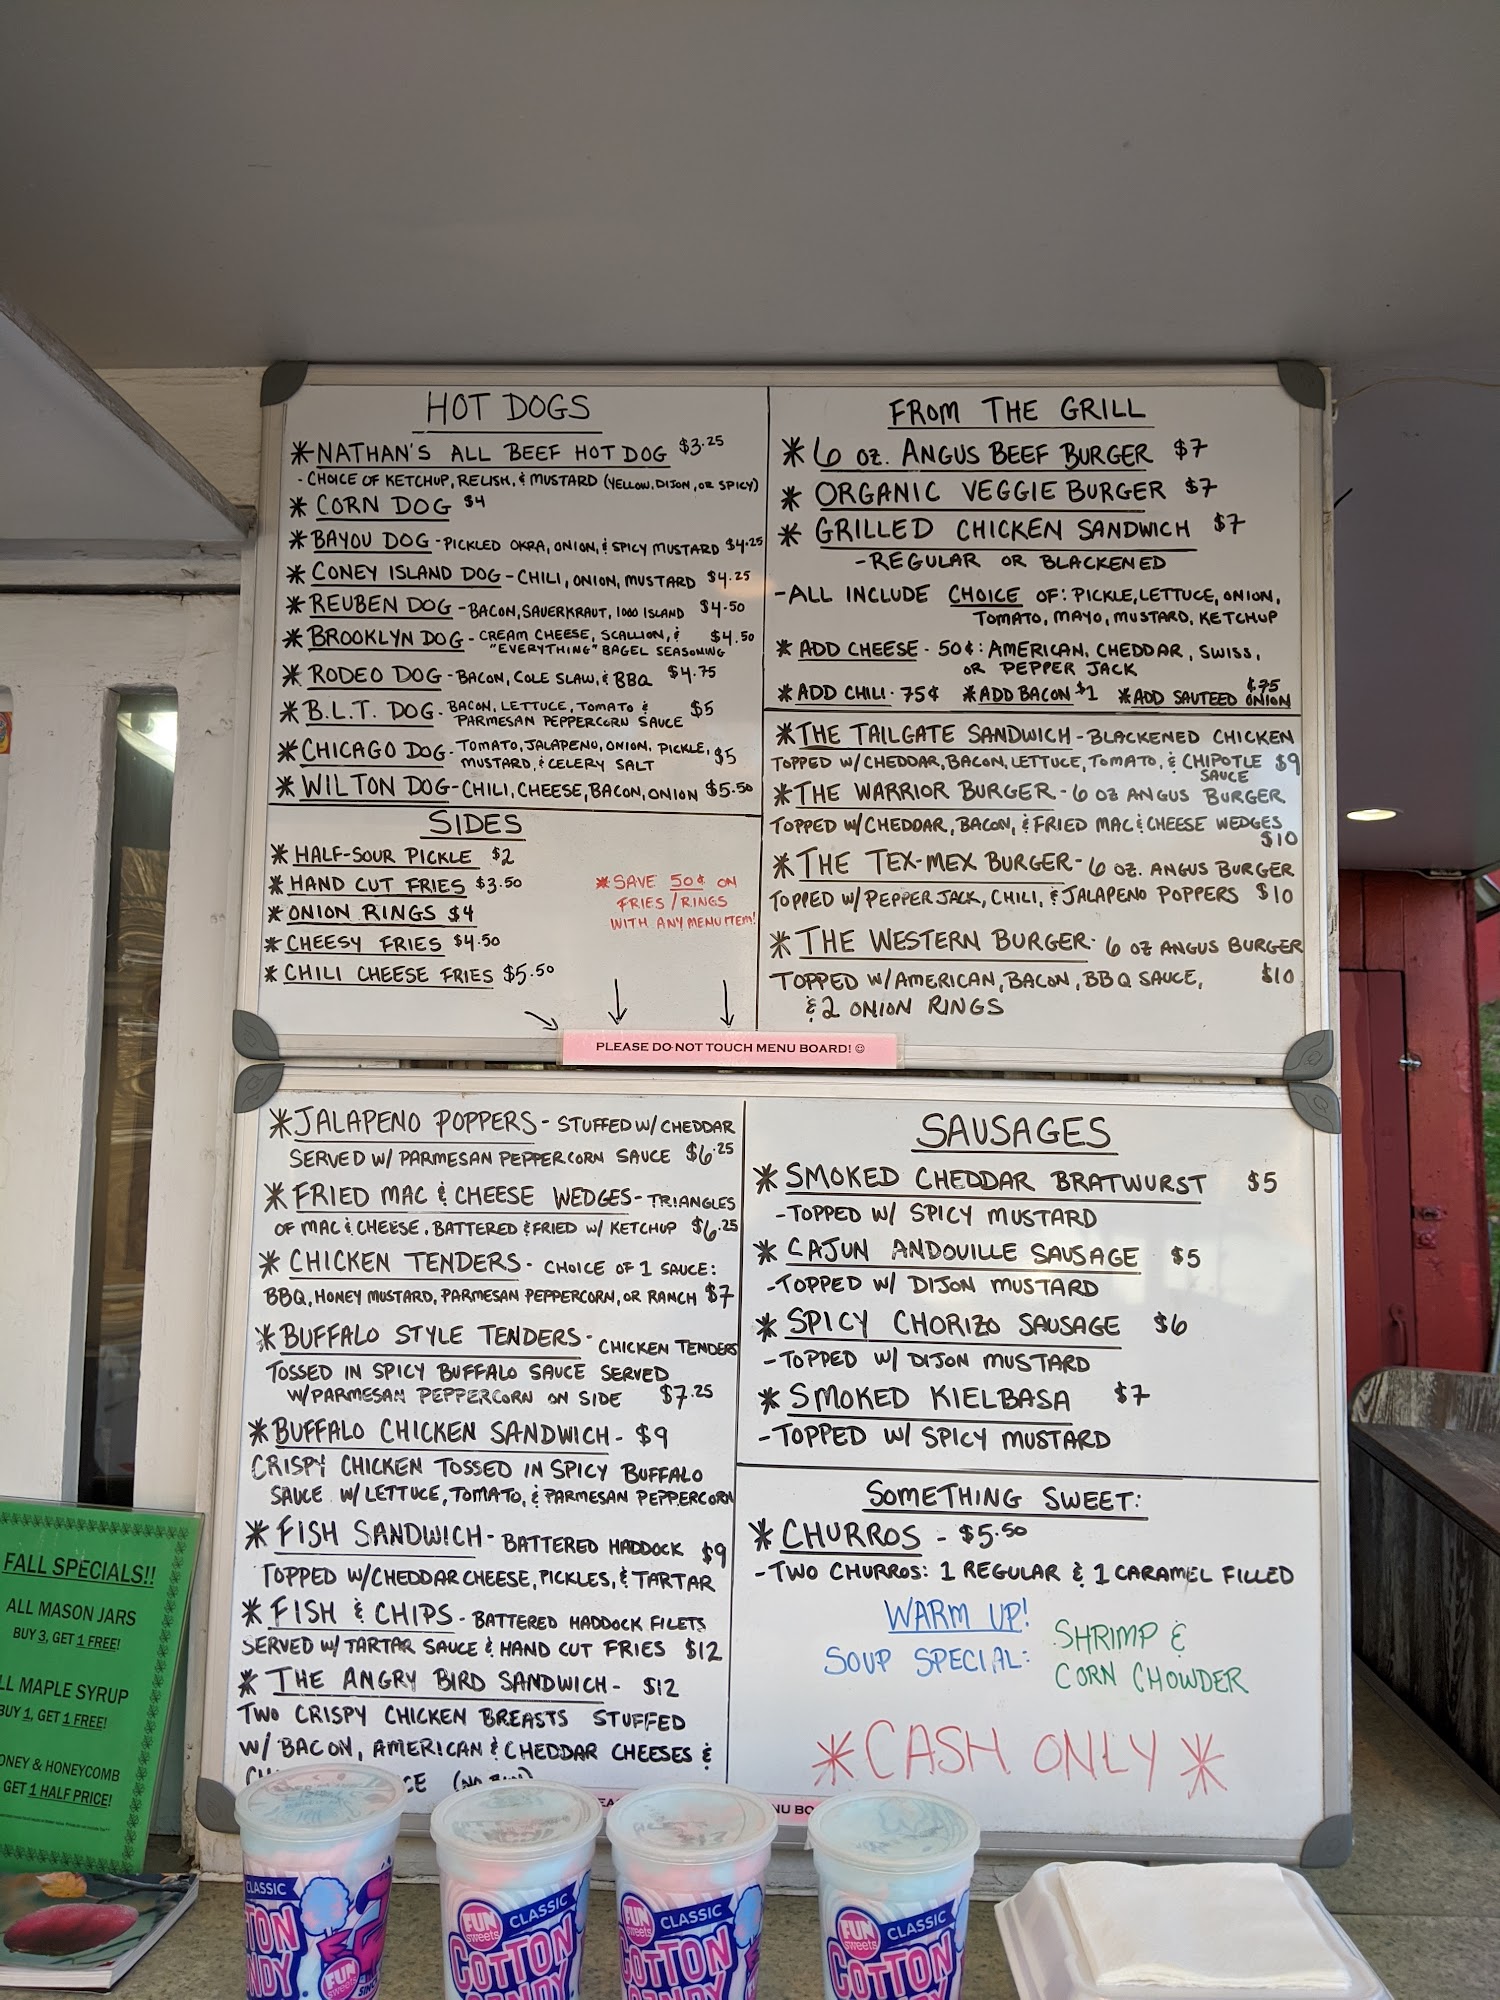 HOT DOGS
* NATHAN'S ALL BEEF HOT DOG $3.25
- CHOICE OF KETCHUP, RELISH, & MUSTARD (YELLOW, DIJON, OR SPICY)
* CORN DOG $4
* BAYOU DOG - PICKLED OKRA, ONION, & SPICY MUSTARD $4.25
* CONEY ISLAND DOG - CHILI, ONION, MUSTARD $4.25
* REUBEN DOG - BACON, SAUERKRAUT, 1000 ISLAND $4.50
* BROOKLYN DOG - CREAM CHEESE, SCALLION, & $4.50
"EVERYTHING" BAGEL SEASONING
* RODEO DOG - BACON, COLE SLAW, & BBQ $4.75
* B.L.T. DOG - BACON, LETTUCE, TOMATO & $5
PARMESAN PEPPERCORN SAUCE
* CHICAGO DOG - TOMATO, JALAPENO, ONION, PICKLE, $5
MUSTARD, & CELERY SALT
* WILTON DOG - CHILI, CHEESE, BACON, ONION $5.50
SIDES
* HALF-SOUR PICKLE $2
* HAND CUT FRIES $3.50
* ONION RINGS $4
* CHEESY FRIES $4.50
* CHILI CHEESE FRIES $5.50
* SAVE 50¢ ON
FRIES / RINGS
WITH ANY MENU ITEM!
FROM THE GRILL
* 6 OZ. ANGUS BEEF BURGER $7
* ORGANIC VEGGIE BURGER $7
* GRILLED CHICKEN SANDWICH $7
- REGULAR OR BLACKENED
- ALL INCLUDE CHOICE OF: PICKLE, LETTUCE, ONION,
TOMATO, MAYO, MUSTARD, KETCHUP
* ADD CHEESE - 50¢: AMERICAN, CHEDDAR, SWISS,
OR PEPPER JACK
* ADD CHILI - 75¢ * ADD BACON $1 * ADD SAUTEED ONION $.75
* THE TAILGATE SANDWICH - BLACKENED CHICKEN
TOPPED W/ CHEDDAR, BACON, LETTUCE, TOMATO, & CHIPOTLE $9
SAUCE
* THE WARRIOR BURGER - 6 OZ ANGUS BURGER
TOPPED W/ CHEDDAR, BACON, & FRIED MAC & CHEESE WEDGES
$10
* THE TEX-MEX BURGER - 6 OZ. ANGUS BURGER
TOPPED W/ PEPPER JACK, CHILI, & JALAPENO POPPERS $10
* THE WESTERN BURGER - 6 OZ ANGUS BURGER
TOPPED W/ AMERICAN, BACON, BBQ SAUCE, $10
& 2 ONION RINGS
PLEASE DO NOT TOUCH MENU BOARD! ☺
* JALAPENO POPPERS - STUFFED W/ CHEDDAR
SERVED W/ PARMESAN PEPPERCORN SAUCE $6.25
* FRIED MAC & CHEESE WEDGES - TRIANGLES
OF MAC & CHEESE, BATTERED & FRIED W/ KETCHUP $6.25
* CHICKEN TENDERS - CHOICE OF 1 SAUCE:
BBQ, HONEY MUSTARD, PARMESAN PEPPERCORN, OR RANCH $7
* BUFFALO STYLE TENDERS - CHICKEN TENDERS
TOSSED IN SPICY BUFFALO SAUCE SERVED
W/ PARMESAN PEPPERCORN ON SIDE $7.25
* BUFFALO CHICKEN SANDWICH - $9
CRISPY CHICKEN TOSSED IN SPICY BUFFALO
SAUCE W/ LETTUCE, TOMATO, & PARMESAN PEPPERCORN
* FISH SANDWICH - BATTERED HADDOCK $9
TOPPED W/ CHEDDAR CHEESE, PICKLES, & TARTAR
* FISH & CHIPS - BATTERED HADDOCK FILETS
SERVED W/ TARTAR SAUCE & HAND CUT FRIES $12
* THE ANGRY BIRD SANDWICH - $12
TWO CRISPY CHICKEN BREASTS STUFFED
W/ BACON, AMERICAN & CHEDDAR CHEESES &
SAUSAGES
* SMOKED CHEDDAR BRATWURST $5
- TOPPED W/ SPICY MUSTARD
* CAJUN ANDOUILLE SAUSAGE $5
- TOPPED W/ DIJON MUSTARD
* SPICY CHORIZO SAUSAGE $6
- TOPPED W/ DIJON MUSTARD
* SMOKED KIELBASA $7
- TOPPED W/ SPICY MUSTARD
SOMETHING SWEET:
* CHURROS - $5.50
- TWO CHURROS: 1 REGULAR & 1 CARAMEL FILLED
WARM UP!
SOUP SPECIAL: SHRIMP &
CORN CHOWDER
* CASH ONLY *
FALL SPECIALS!!
ALL MASON JARS
BUY 3, GET 1 FREE!
LL MAPLE SYRUP
BUY 1, GET 1 FREE!
ONEY & HONEYCOMB
GET 1 HALF PRICE!
CLASSIC
TON
NDY
FUN
sweets
FUN
sweets
CLASSIC
COTTON
FUN
sweets
CLASSIC
COTTON
FUN
sweets
CLASSIC
COTTON